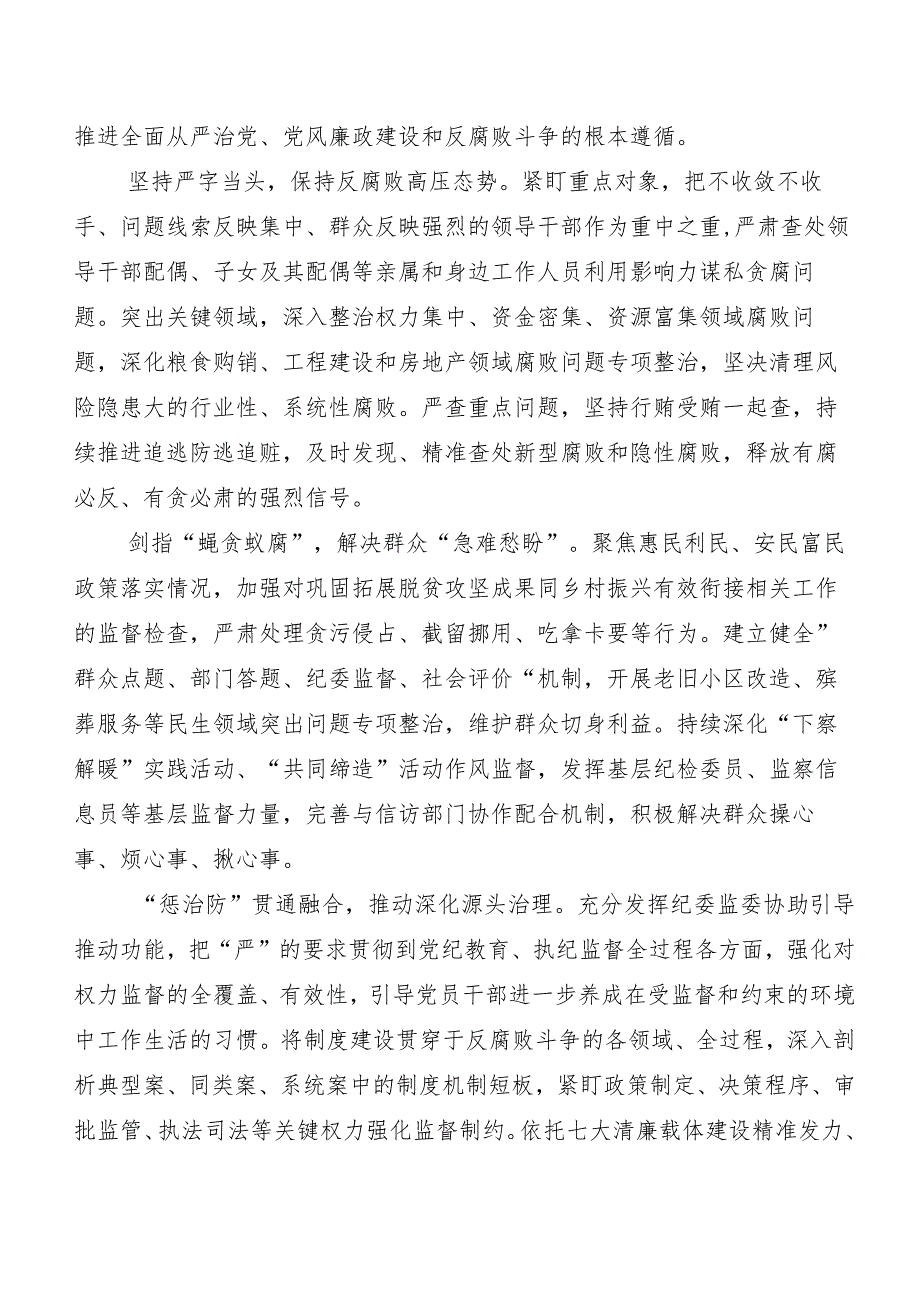 推进全面从严治党、党风廉政建设和反腐败斗争的根本遵循。
坚持严字当头，保持反腐败高压态势。紧盯重点对象，把不收敛不收
手、问题线索反映集中、群众反映强烈的领导干部作为重中之重,严肃查处领
导干部配偶、子女及其配偶等亲属和身边工作人员利用影响力谋私贪腐问
题。突出关键领域，深入整治权力集中、资金密集、资源富集领域腐败问
题，深化粮食购销、工程建设和房地产领域腐败问题专项整治，坚决清理风
险隐患大的行业性、系统性腐败。严查重点问题，坚持行贿受贿一起查，持
续推进追逃防逃追赃，及时发现、精准查处新型腐败和隐性腐败，释放有腐
必反、有贪必肃的强烈信号。
剑指“蝇贪蚁腐”，解决群众“急难愁盼”。聚焦惠民利民、安民富民
政策落实情况，加强对巩固拓展脱贫攻坚成果同乡村振兴有效衔接相关工作
的监督检查，严肃处理贪污侵占、截留挪用、吃拿卡要等行为。建立健全”
群众点题、部门答题、纪委监督、社会评价“机制，开展老旧小区改造、殡
葬服务等民生领域突出问题专项整治，维护群众切身利益。持续深化“下察
解暖”实践活动、“共同缔造”活动作风监督，发挥基层纪检委员、监察信
息员等基层监督力量，完善与信访部门协作配合机制，积极解决群众操心
事、烦心事、揪心事。
“惩治防”贯通融合，推动深化源头治理。充分发挥纪委监委协助引导
推动功能，把“严”的要求贯彻到党纪教育、执纪监督全过程各方面，强化对
权力监督的全覆盖、有效性，引导党员干部进一步养成在受监督和约束的环境
中工作生活的习惯。将制度建设贯穿于反腐败斗争的各领域、全过程，深入剖
析典型案、同类案、系统案中的制度机制短板，紧盯政策制定、决策程序、审
批监管、执法司法等关键权力强化监督制约。依托七大清廉载体建设精准发力、